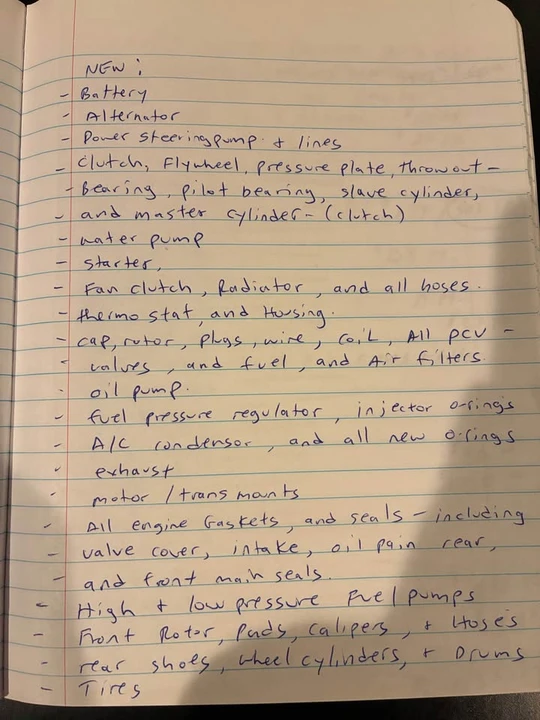 NEW:
- Battery
- Alternator
- Power steering pump + lines
- Clutch, Flywheel, pressure plate, throwout -
- Bearing, pilot bearing, slave cylinder,
- and master cylinder - (clutch)
- water pump
- starter,
- Fan clutch, Radiator, and all hoses.
- thermostat, and Housing.
- cap, rotor, plugs, wire, coiL, All pcv -
- valves, and fuel, and Air filters.
oil pump.
- fuel pressure regulator, injector o-rings
- A/C condensor, and all new o-rings
- exhaust
- motor / trans mounts
- All engine Gaskets, and seals - including
- valve cover, intake, oil pain rear,
- and front main seals.
- High + low pressure Fuel pumps
- Front Rotor, Pads, calipers, + Hoses
- rear shoes, wheel cylinders, + Drums
- Tires